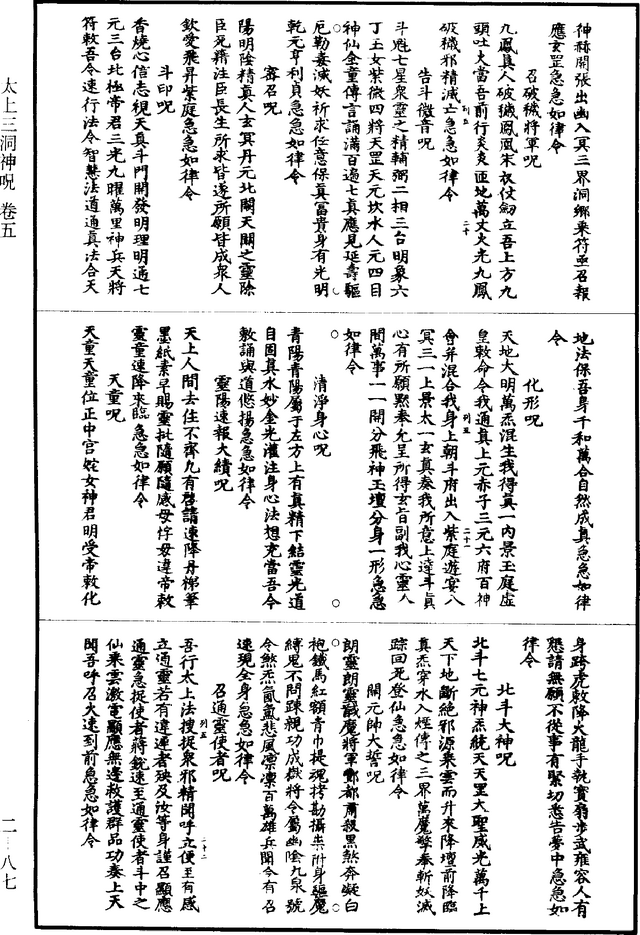 太上三洞神呪 卷五
二－八七
神赫開張出幽入冥三界洞鄉乘符亟召報
應玄罡急急如律令
召破穢將軍呪
九鳳真人破穢鳳凰宋衣仗劒立吾上方九
頭吐火當吾前行炎炎匝地萬丈火光九鳳
破穢邪精滅亡急急如律令
告斗徵音呪
斗魁七星衆靈之精輔弼二相三台明象六
丁玉女紫微四將天罡天元坎水人元四目
神仙金童傳言誦滿百過七真應見延壽驅
厄勒毒滅妖祈求任意保真冨貴身有光明
乾元亨利貞急急如律令
密召呪
陽明陰精真人玄冥丹元北關天關之靈除
臣死籍注臣長生所求皆遂所願皆成衆人
欽愛飛昇紫庭急急如律令
斗印呪
香繞心信志視天真斗門開發明理明通七
元三台北極帝君三光九曜萬里神兵天將
符敕吾令速行法令智慧法道通真法合天
地法保吾身千和萬合自然成真急急如律
令
化形呪
天地大明萬炁混生我得真一内景玉庭虛
皇敕命令我通真上元赤子三元六府百神
會并混合我身上朝斗府出入紫庭遊宴八
冥三一上景太一玄真奏我所意上達斗真
心有所願黙奉允呈所得玄旨副我心靈人
間萬事一一開分飛神玉壇分身一形急急
如律令
清淨身心呪
青陽青陽屬于左方上有真精下結靈光道
自固真水妙金光灌注身心法想充當吾令
敷誦與道悠揚急急如律令
靈陽速報大續呪
天上人間去住不齊凡有啓請速降丹梯筆
墨紙素早賜靈批隨願隨感毋悖毋違帝敕
靈童速降來臨急急如律令
天童呪
天童天童位正中宫姹女神君明受帝敕化
身跨虎敕降火龍手執寳劒步武雍容人有
懇請無願不從事有緊切悉告夢中急急如
律令
北斗大神呪
北斗七元神炁統天天罡大聖威光萬千上
天下地斷絶邪源乘雲而升來降壇前降臨
真炁穿水入煙傳之三界萬魔擎拳斬妖滅
踪回死登仙急急如律令
關元帥大誓呪
朗靈朗靈馘魔將軍酆都肅殺黑煞奔凝白
袍鐵馬紅額青巾提魂拷勘攝祟附身驅魔
縛鬼不問踈親功成嶽將令屬幽陰九泉號
令煞炁氤氳悲風凛凛百萬雄兵聞令有召
速現全身急急如律令
召通靈使者呪
吾行太上法搜捉衆邪精聞呼立便至有感
立通靈若有違逆者殃及汝等身謹召顯應
通靈急捉使者將銳速至通靈使者斗中之
仙乘雲激電顯應無邊救護群品功奏上天
聞吾呼召火速到前急急如律令